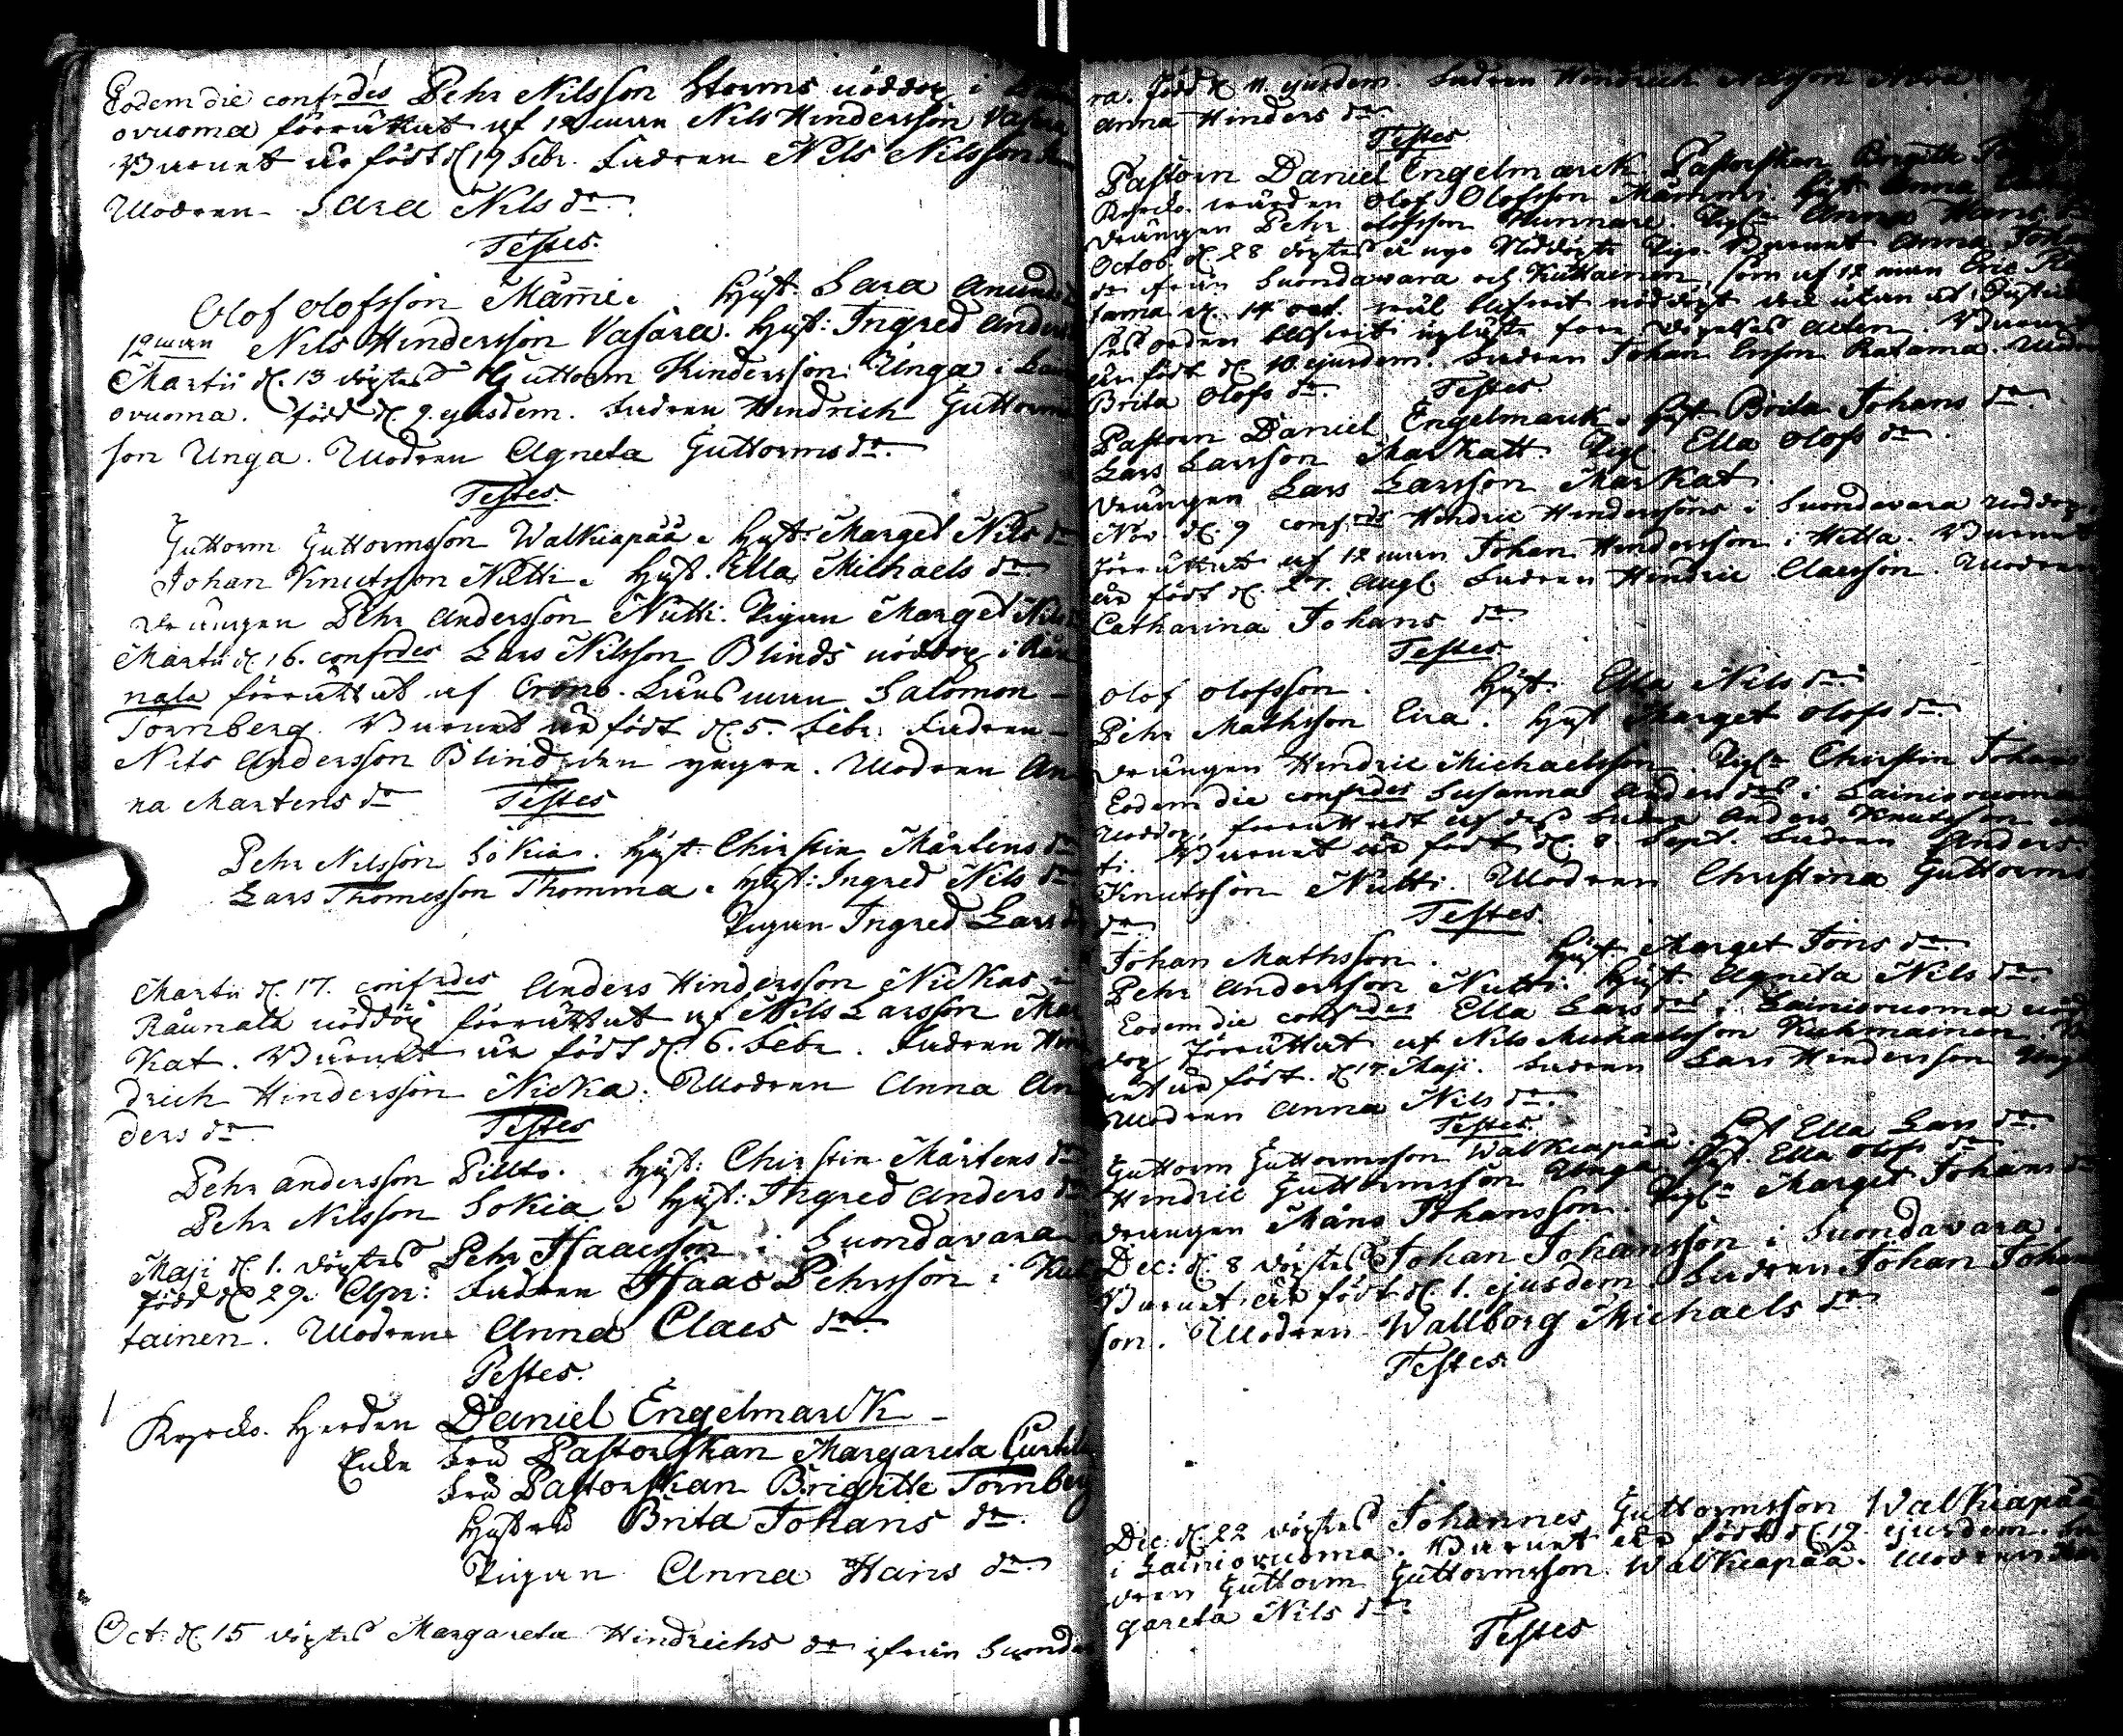 Eodem die confrdes Pehr Nilsson Storms nöddop i
ovuoma förrättat af 12 man Nils Hindersson Vasara
Barnet är födt d. 19 Febr. Fadren Nils Nilsson
Modren Sara Nils dr.
Testes.
Olof Olofsson Mämie. Hust: Sara Amunds
12 man Nils Hindersson Vasara. Hust: Ingred Anders
Martii d. 13 döptes Guttorm Hindersson Unga i Lain
ovuoma. född d. 9. ejusdem. Fadren Hindrich Guttorms
son Unga. Modren Agneta Guttorms dr.
Testes.
Guttorm Guttormsson Walkiapää. Hust: Marget Nils dr
Johan Knutsson Nutti. Hust. Ella Michaels dr.
Drängen Pehr Andersson Nutti. Pigan Marget Nils
Martii d. 16. confrdes Lars Nilsson Blinds nöddop i Rau
nala förrättat af Crono. Länsman Salomon
Tornberg. Barnet är födt d. 5. Febr. Fadren
Nils Andersson Blind den yngre. Modren An
na Martens dr Testes
Pehr Nilsson Sokia. Hust: Chirstin Mårtens dr
Lars Thomesson Thomma. Hust: Ingred Nils dr
Pigan Ingred Lars dr
Martii d. 17. confrdes Anders Hindersson Nickas i
Raunala nöddop förrättat af Nils Larsson Mar
Kat. Barnet är födt d. 6. Febr. Fadren Hin
drich Hindersson Nicka. Modren Anna An
ders dr. Testes
Pehr Andersson Pillto. Hust: Chirstin Mårtens dr
Pehr Nilsson Sokia. Hust: Ingred Anders dr
Maji d. 1. döptes Pehr Isaacsson i Suondavara
född d. 29. Apr: Fadren Isaac Pehrsson i Kut
tainen. Modren Anna Claes dr.
Testes.
Kyrcko. Herden Daniel Engelmarck
Enke Fru Pastorskan Margareta Curtil
Fru Pastorskan Brigitte Tornberg
Hustru Brita Johans dr.
Pigan Anna Hans dr.
Oct: d. 15 döptes Margareta Hindrichs dr ifrån Suonda
ra. född d. 11. ejusdem. Fadren Hindrich
Anna Hinders dr.
Testes
Pastorn Daniel Engelmarck Pastorskan Brigitte
Kyrcko. wärden Olof Olofsson Mämmi. Hust Anna
Drängen Pehr Olofsson Hunnare. Pig. Anna Hans dr
Octob. d. 28 döptes Barnet Anna Johans
dr ifrån Suondavara och Kuttainen, som af 12 man Eric
samma d. 14 oct. blifvit nöddöpt
orden blifvit
är födt d. 10 ejusdem. Fadren Johan Ersson Ratama. Modren
Brita Olofs dr. Testes
Pastorn Daniel Engelmarck. Hust Brita Johans dr.
Lars Larsson Markatt. Pig. Ella Olofs dr.
Drängen Lars Larsson Markat.
Nov. d. 9 confrds Hindric Hinderssons i Suondavara nöddop,
förrättat af 12 man Johan Hindersson i Hetta. Barnet
är födt d. 27. Aug. Fadren Hindric Claesson. Modren
Catharina Johans dr.
Testes
Olof Olofsson. Hust: Ella Nils dr.
Pehr Mathsson Eira. Hust Marget Olofs dr.
Drängen Hindric Michaelsson. Pig. Chirstin Johans
Eodem die confrdes Susanna Anders drs i Lainiovuoma
Nöddop, förrättadt af des Fader Anders Knutsson Nut
ti. Barnet är födt d. 8. Sept. Fadren Anders
Knutsson Nutti. Modren Christina Guttorms
dr. Testes.
Johan Mathsson. Hust: Marget Jöns dr.
Pehr Andersson Nutti. Hust: Agneta Nils dr.
Eodem die confrdes Ella Lars drs i Lainiovuoma nöd
dop förrättat af Nils Michaelsson Kuhmainen. Bar
net är födt. d. 17. Maji. Fadren Lars Hindersson Unga
Modren Anna Nils dr.
Testes
Guttorm Guttormsson Walkeapää. Hust Ella Lars dr.
Hindric Guttormsson Unga. Hust. Ella Olofs dr
Drängen Måns Johansson. Pig. Marget Johans dr
Dec: d. 8 döptes Johan Johansson i Suondavara.
Barnet är födt d. 1. ejusdem. Fadren Johan Johans
son. Modren Wallborg Michaels dr
Testes
Dec: d. 22 döptes Johannes Guttormsson Walkiapää
i Lainiovuoma. Barnet är födt d. 19. ejusdem. Fa
dren Guttorm Guttormsson Walkiapää. Modren Mar
gareta Nils dr.
Testes